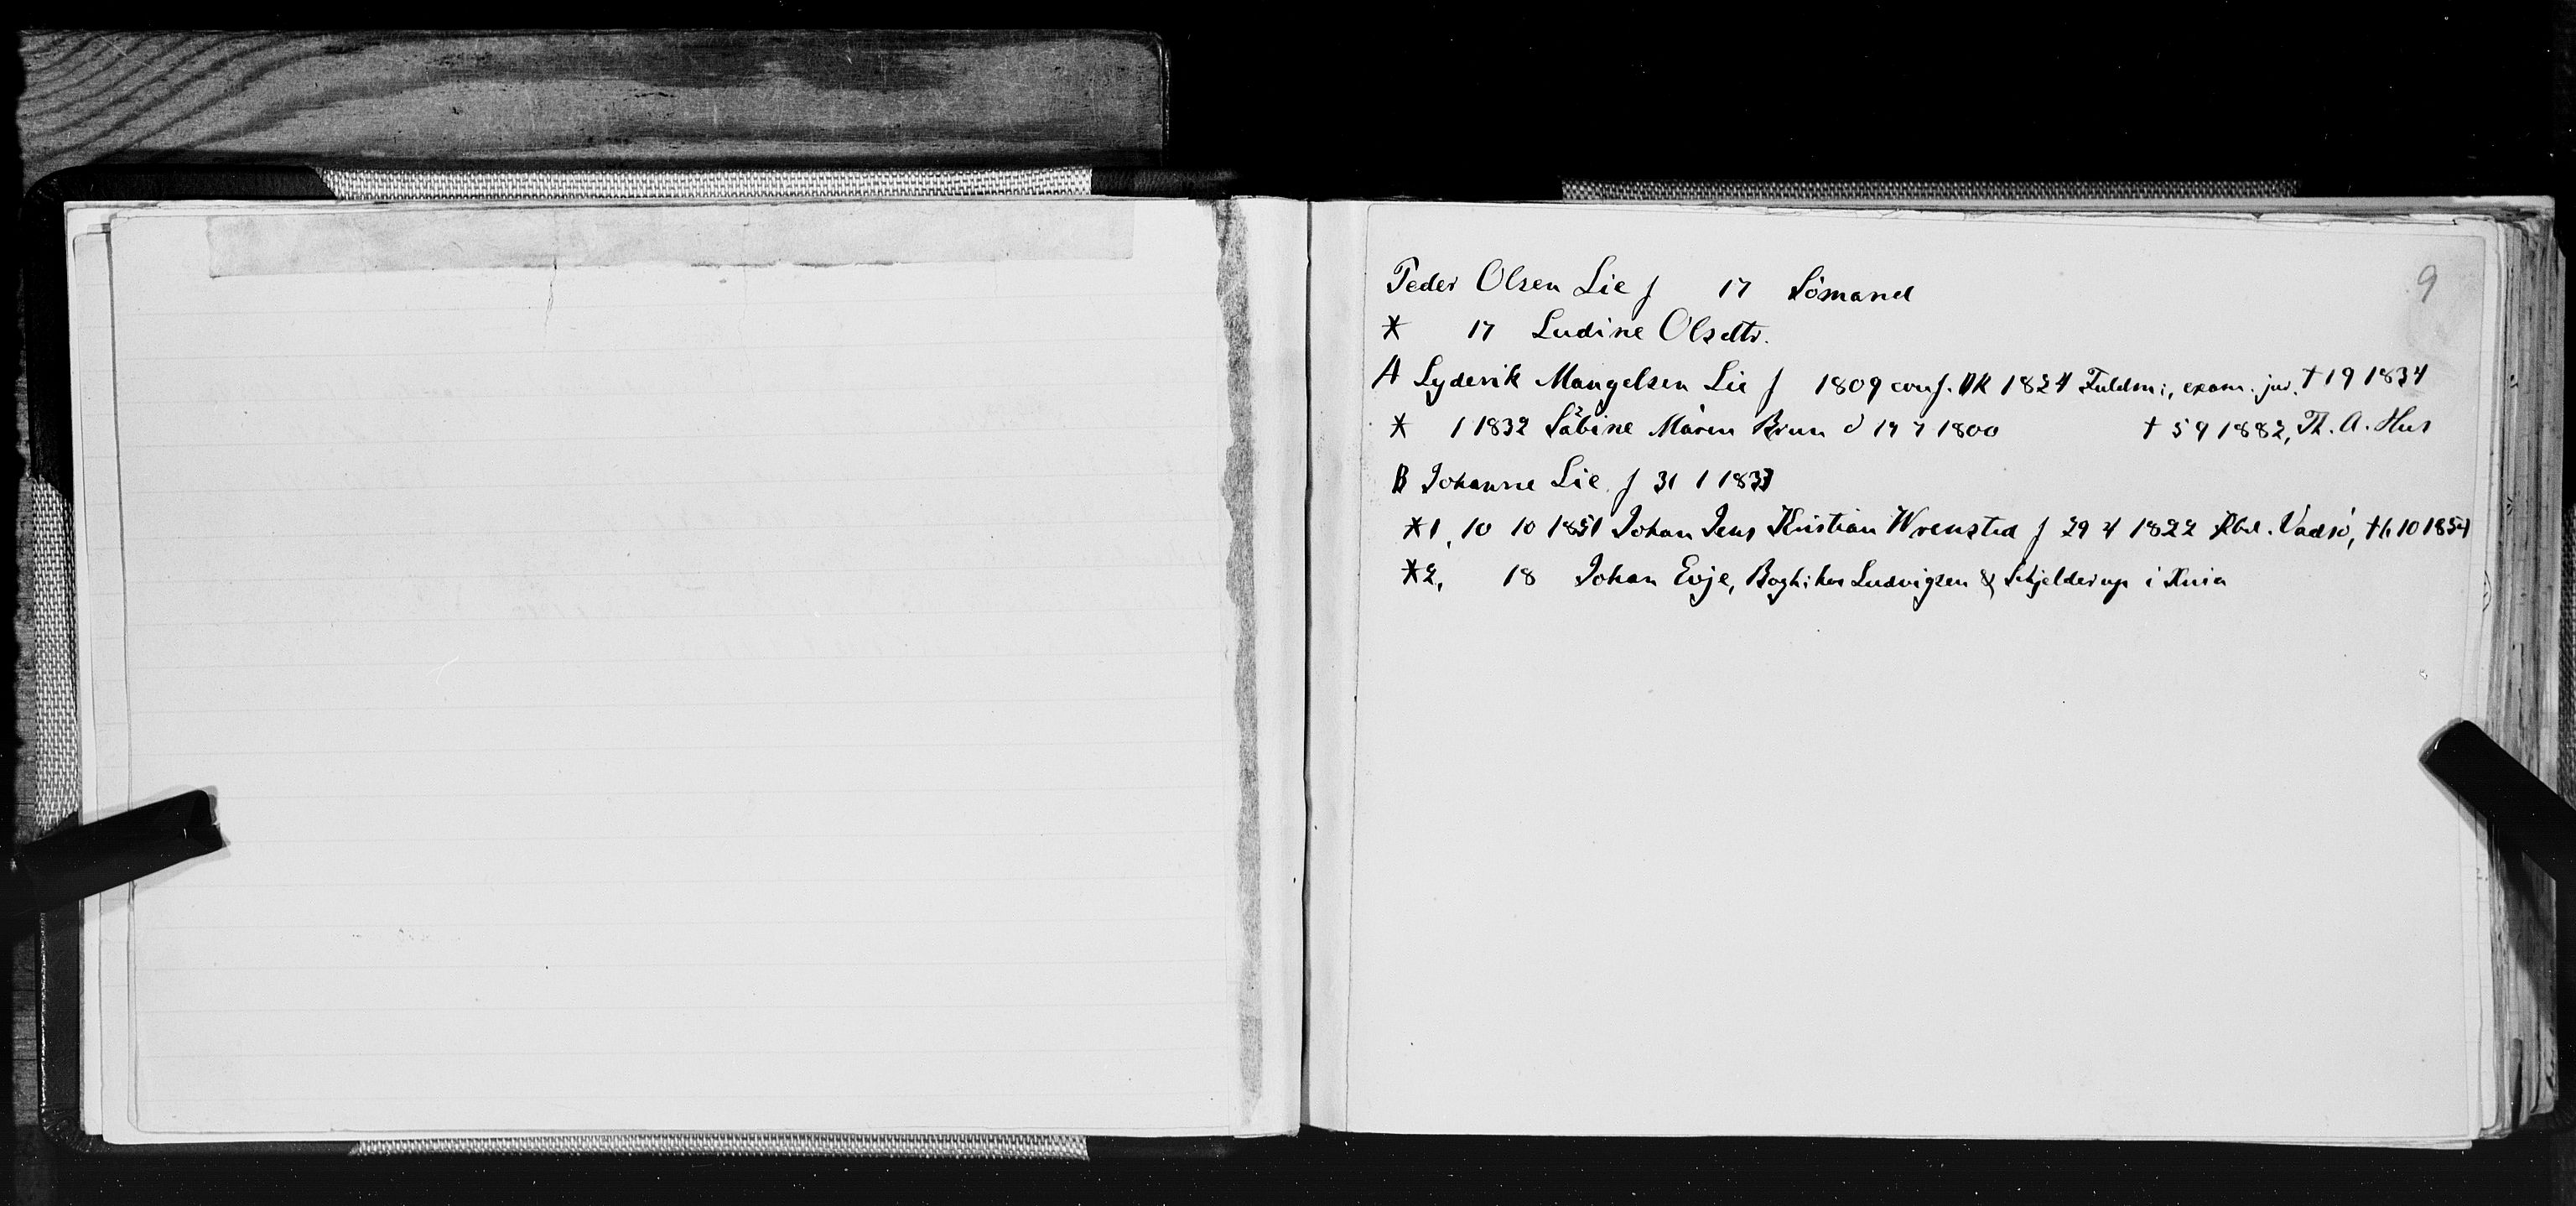 9
Peder Olsen Lie f 17 Sömand
* 17 Ludine Olsdtr.
A Lyderik Mangelsen Lie f 1809 conf. DK 1824 Fuldm:, exam. jur. † 19 1834
* 1 1832 Sabine Maren Brun d 19 7 1800 † 5 9 1882, Th. A. Hus
B Johanne Lie f 31 1 1833
*1, 10 10 1851 Johan Jens Kristian Wrensted f 29 4 1822 Kbm. Vadsö, † 6 10 1854
*2, 18 Johan Evje, Boghr hos Ludvigsen & Schjelderup i Xnia